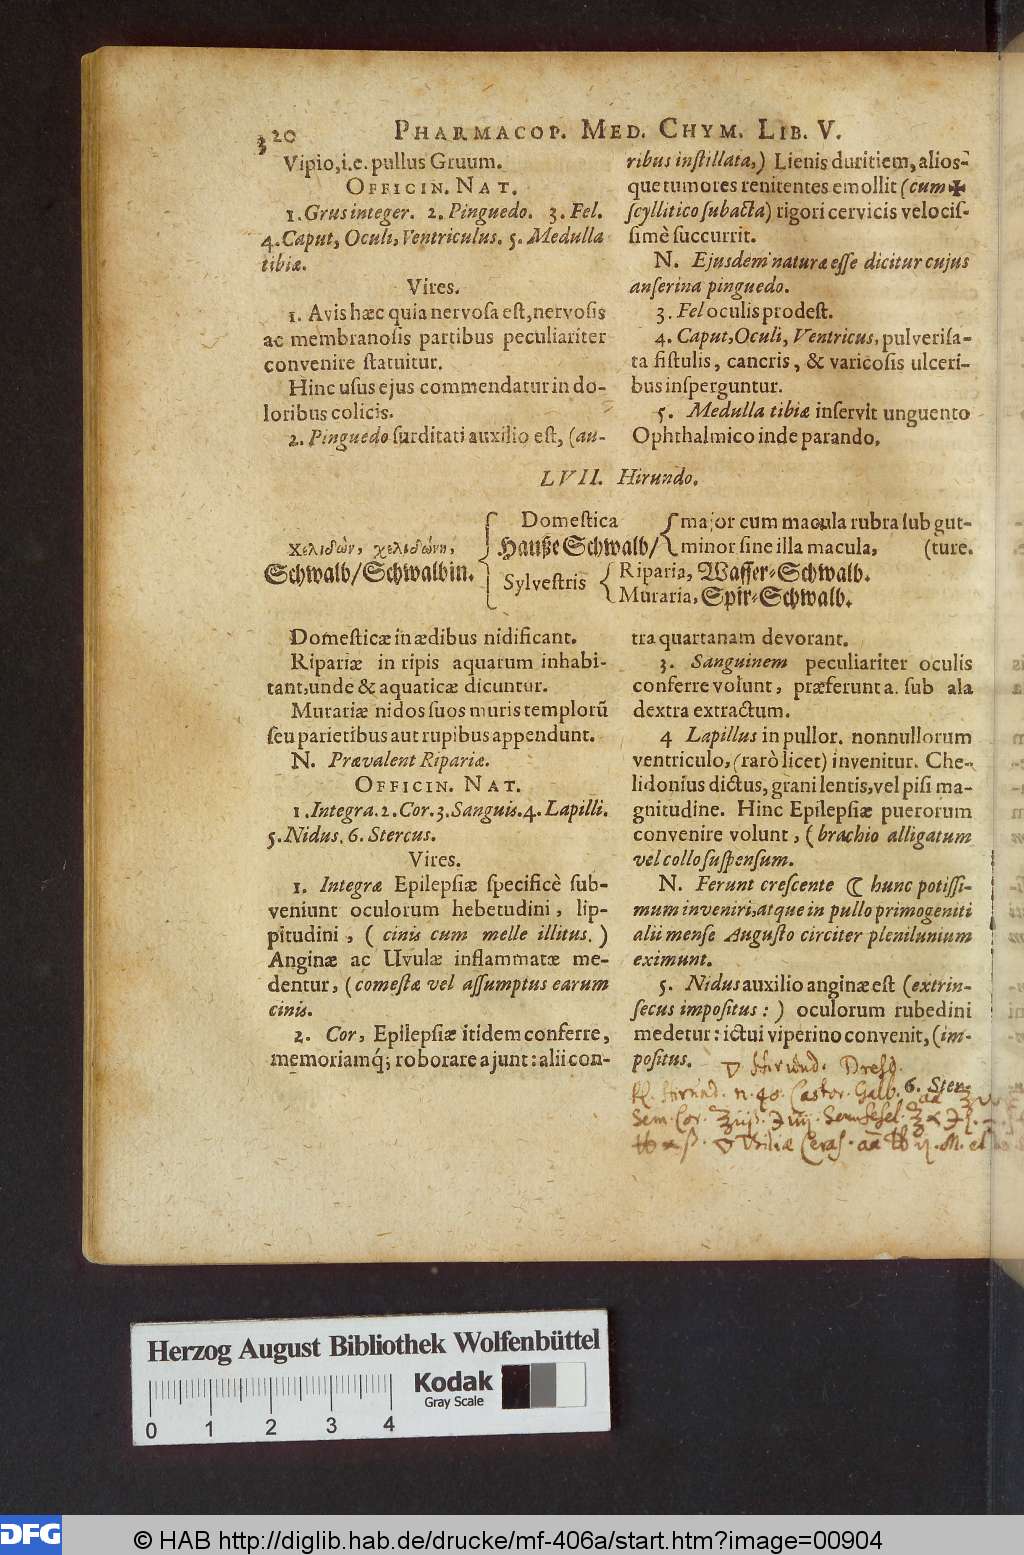 320 PHARMACOP. MED. CHYM. LIB. V.
Vipio, i.e. pullus Gruum.
OFFICIN. NAT.
1. Grus integer. 2. Pinguedo. 3. Fel.
4. Caput, Oculi, Ventriculus. 5. Medulla
tibiæ.
Vires.
1. Avis hæc quia nervosa est, nervosis
ac membranosis partibus peculiariter
convenire statuitur.
Hinc usus ejus commendatur in do-
loribus colicis.
2. Pinguedo surditati auxilio est, (au-
ribus instillata,) Lienis duritiem, alios-
que tumores renitentes emollit (cum ✠
scyllitico subacta) rigori cervicis velocis-
simè succurrit.
N. Ejusdem naturæ esse dicitur cujus
anserina pinguedo.
3. Fel oculis prodest.
4. Caput, Oculi, Ventricus, pulverisa-
ta fistulis, cancris, & varicosis ulceri-
bus insperguntur.
5. Medulla tibiæ inservit unguento
Ophthalmico inde parando.
LVII. Hirundo.
χελιδὼν, χελιδώνη,
Schwalb/Schwalbin.
Domestica
Hauße Schwalb/
major cum macula rubra sub gut-
minor sine illa macula, (ture.
Sylvestris
Riparia, Wasser-Schwalb.
Muraria, Spir-Schwalb.
Domesticæ in ædibus nidificant.
Ripariæ in ripis aquarum inhabi-
tant, unde & aquaticæ dicuntur.
Murariæ nidos suos muris templorũ
seu parietibus aut rupibus appendunt.
N. Prævalent Ripariæ.
OFFICIN. NAT.
1. Integra. 2. Cor. 3. Sanguis. 4. Lapilli.
5. Nidus. 6. Stercus.
Vires.
1. Integræ Epilepsiæ specificè sub-
veniunt oculorum hebetudini, lip-
pitudini, (cinis cum melle illitus.)
Anginæ ac Uvulæ inflammatæ me-
dentur, (comestæ vel assumptus earum
cinis.
2. Cor, Epilepsiæ itidem conferre,
memoriamq́; roborare ajunt: alii con-
tra quartanam devorant.
3. Sanguinem peculiariter oculis
conferre volunt, præferunt a. sub ala
dextra extractum.
4 Lapillus in pullor. nonnullorum
ventriculo, (rarò licet) invenitur. Che-
lidonius dictus, grani lentis, vel pisi ma-
gnitudine. Hinc Epilepsiæ puerorum
convenire volunt, (brachio alligatum
vel collo suspensum.
N. Ferunt crescente ☾ hunc potissi-
mum inveniri, atque in pullo primogeniti
alii mense Augusto circiter plenilunium
eximunt.
5. Nidus auxilio anginæ est (extrin-
secus impositus:) oculorum rubedini
medetur: ictui viperino convenit, (im-
positus.
6. Ster-
Hirund. Dresd.
Hirund. n. 40. Castor. Galb. aa
Sem. Cor.
Ceras. aā M.
Herzog August Bibliothek Wolfenbüttel
Kodak
Gray Scale
0 1 2 3 4
DFG
© HAB http://diglib.hab.de/drucke/mf-406a/start.htm?image=00904